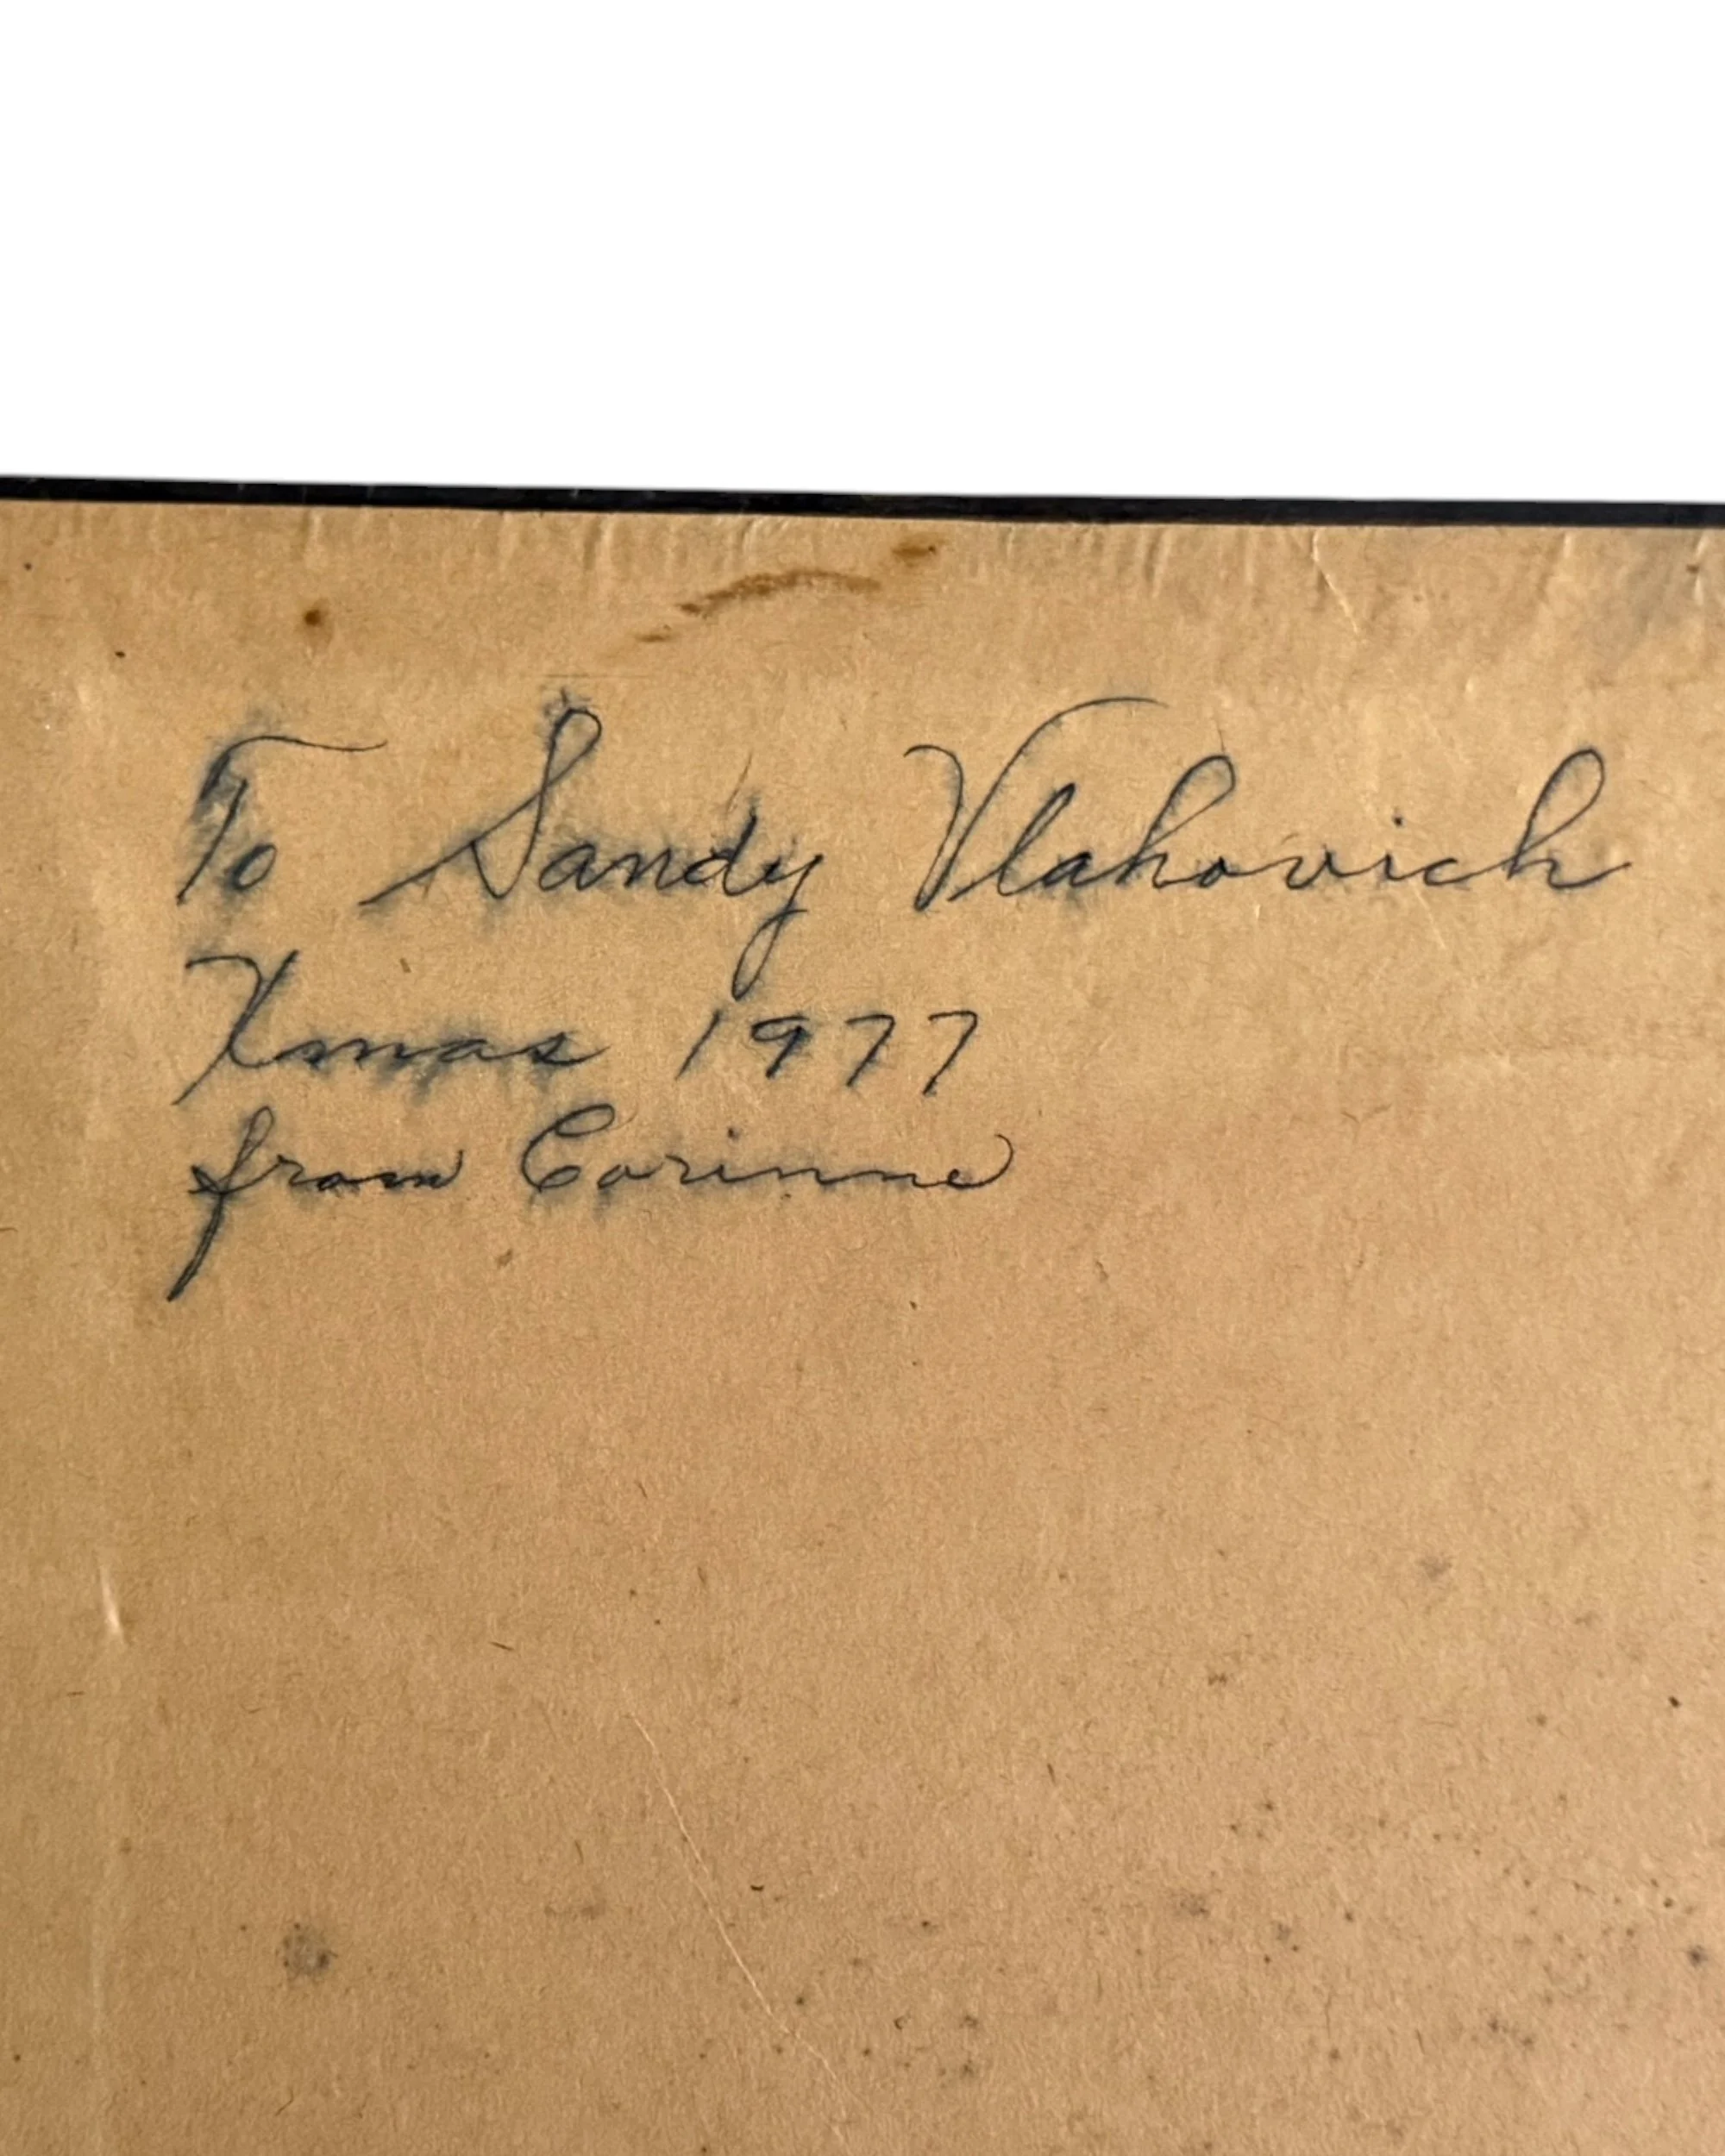 To Sandy Vlahovich
Xmas 1977
from Corinne